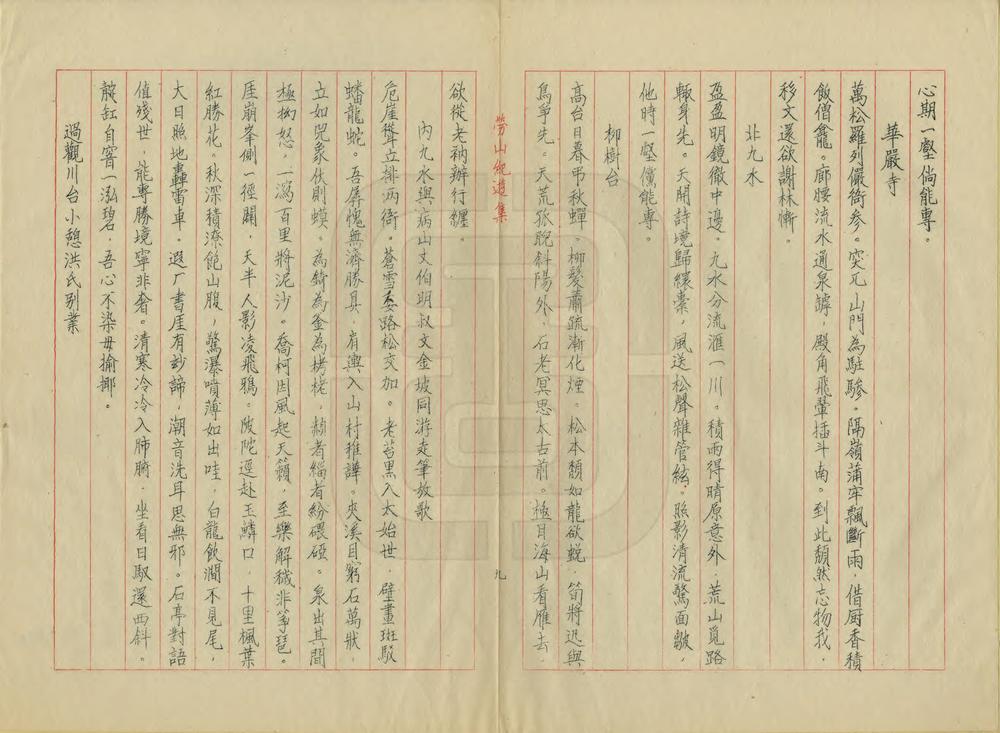 心期一壑倘能專。
華嚴寺
萬松羅列儼銜參。突兀山門為駐驂。隔嶺蒲牢飄斷雨，借厨香積
飯僧龕。廊腰流水通泉罅，殿角飛翬插斗南。到此頹然忘物我，
移文還欲謝林慚。
北九水
盈盈明鏡徹中邊。九水分流滙一川。積雨得晴原意外，荒山覓路
輙身先。天開詩境歸緩橐，風送松聲雜管絃。照影清流驚面皺，
他時一壑儻能專。
柳樹台
高台日暮弔秋蟬。柳髮蕭疏漸化煙。松本頹如龍欲蛻，筍將迟與
鳥爭先。天荒孤睨斜陽外，石老冥思太古前。極目海山看雁去，
勞山紀遊集
九
欲從老衲辦行纏。
內九水與病山丈伯明叔文金坡同游走筆放歌
危崖聳立排兩衙。蒼雪委路松交加。老苔黑入太始世，壁畫斑駁
蟠龍蛇。吾孱愧無濟勝具，肩輿入山村稚譁。夾溪目窮石萬狀，
立如兕象伏則蟆。為錡為釜為栲栳，赬者緇者紛碨砐。泉出其間
極拗怒，一瀉百里將泥沙。喬柯因風起天籟，至樂解穢非箏琶。
厓崩峯側一徑闢，天半人影凌飛鴉。陂陀逕赴玉鱗口，十里楓葉
紅勝花。秋深積潦飽山腹，驚瀑噴薄如出哇，白龍飲澗不見尾，
大日照地轟雷車。遐厂書厓有妙諦，潮音洗耳思無邪。石亭對語
值殘世，能專勝境寧非奢。清寒冷冷入肺腑，坐看日馭還西斜。
靛缸自窨一泓碧，吾心不染毋揄揶。
過觀川台小憩洪氏別業